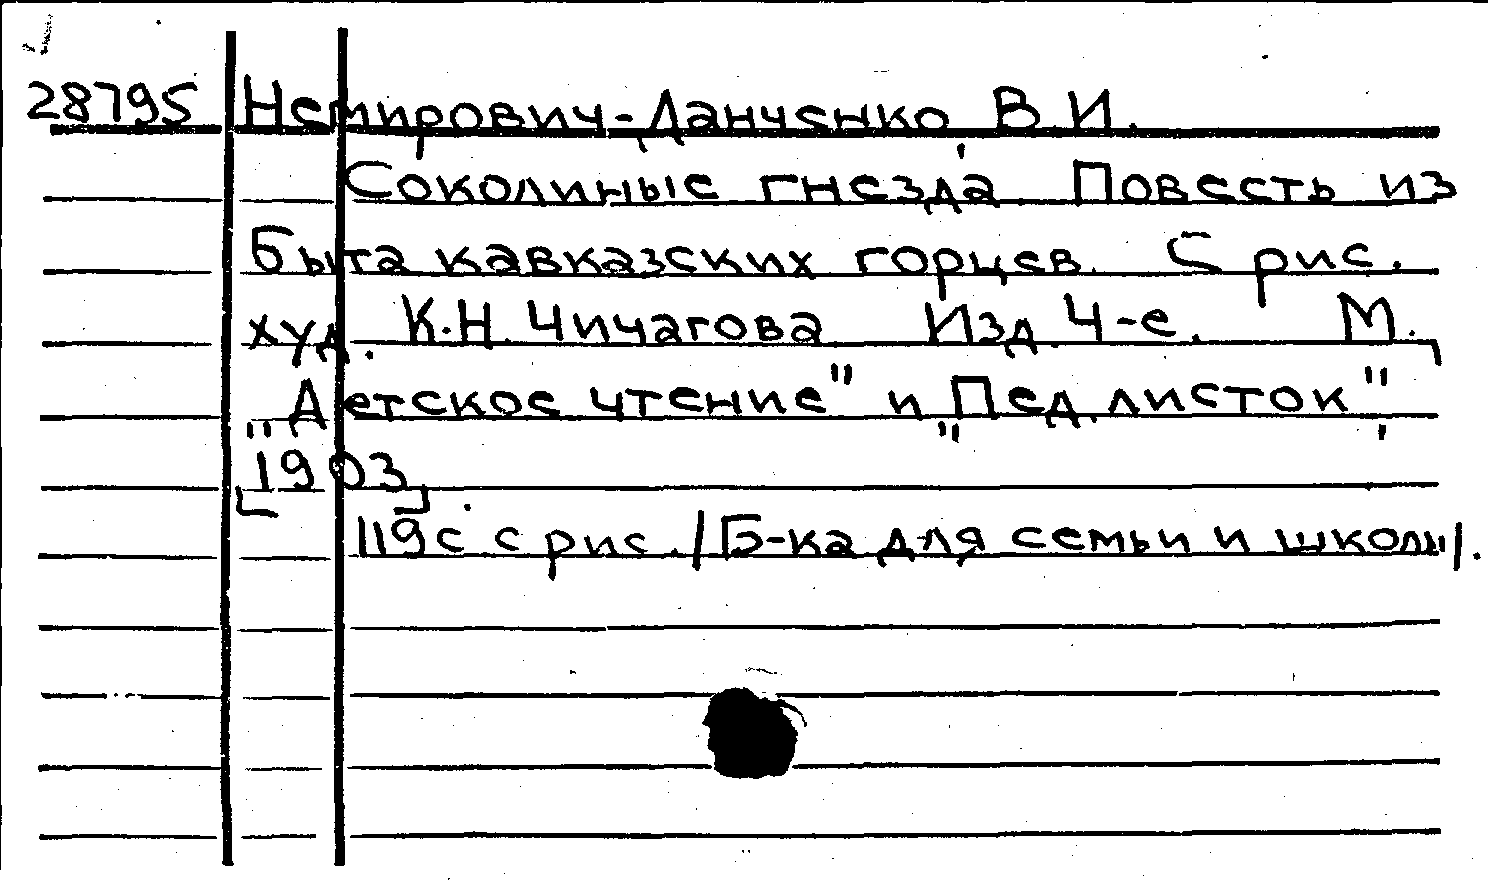 28795 Немирович-Данченко, В.И.
Соколиные гнезда. Повесть из
быта кавказских горцев. С рис.
худ. К.Н. Чичагова. Изд. 4-е. М.,
"Детское чтение" и "Пед. листок",
[1903].
119с с рис. /Б-ка для семьи и школы/.